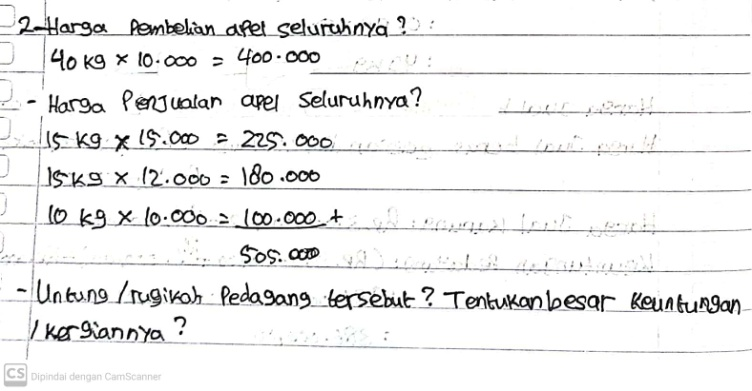 2-Harga Pembelian apel seluruhnya?
40 kg × 10.000 = 400.000
- Harga Penjualan apel seluruhnya?
15 kg × 15.000 = 225.000
15 kg × 12.000 = 180.000
10 kg × 10.000 = 100.000 +
505.000
- Untung / rugikah Pedagang tersebut? Tentukan besar keuntungan
/ kergiannya?
CS Dipindai dengan CamScanner